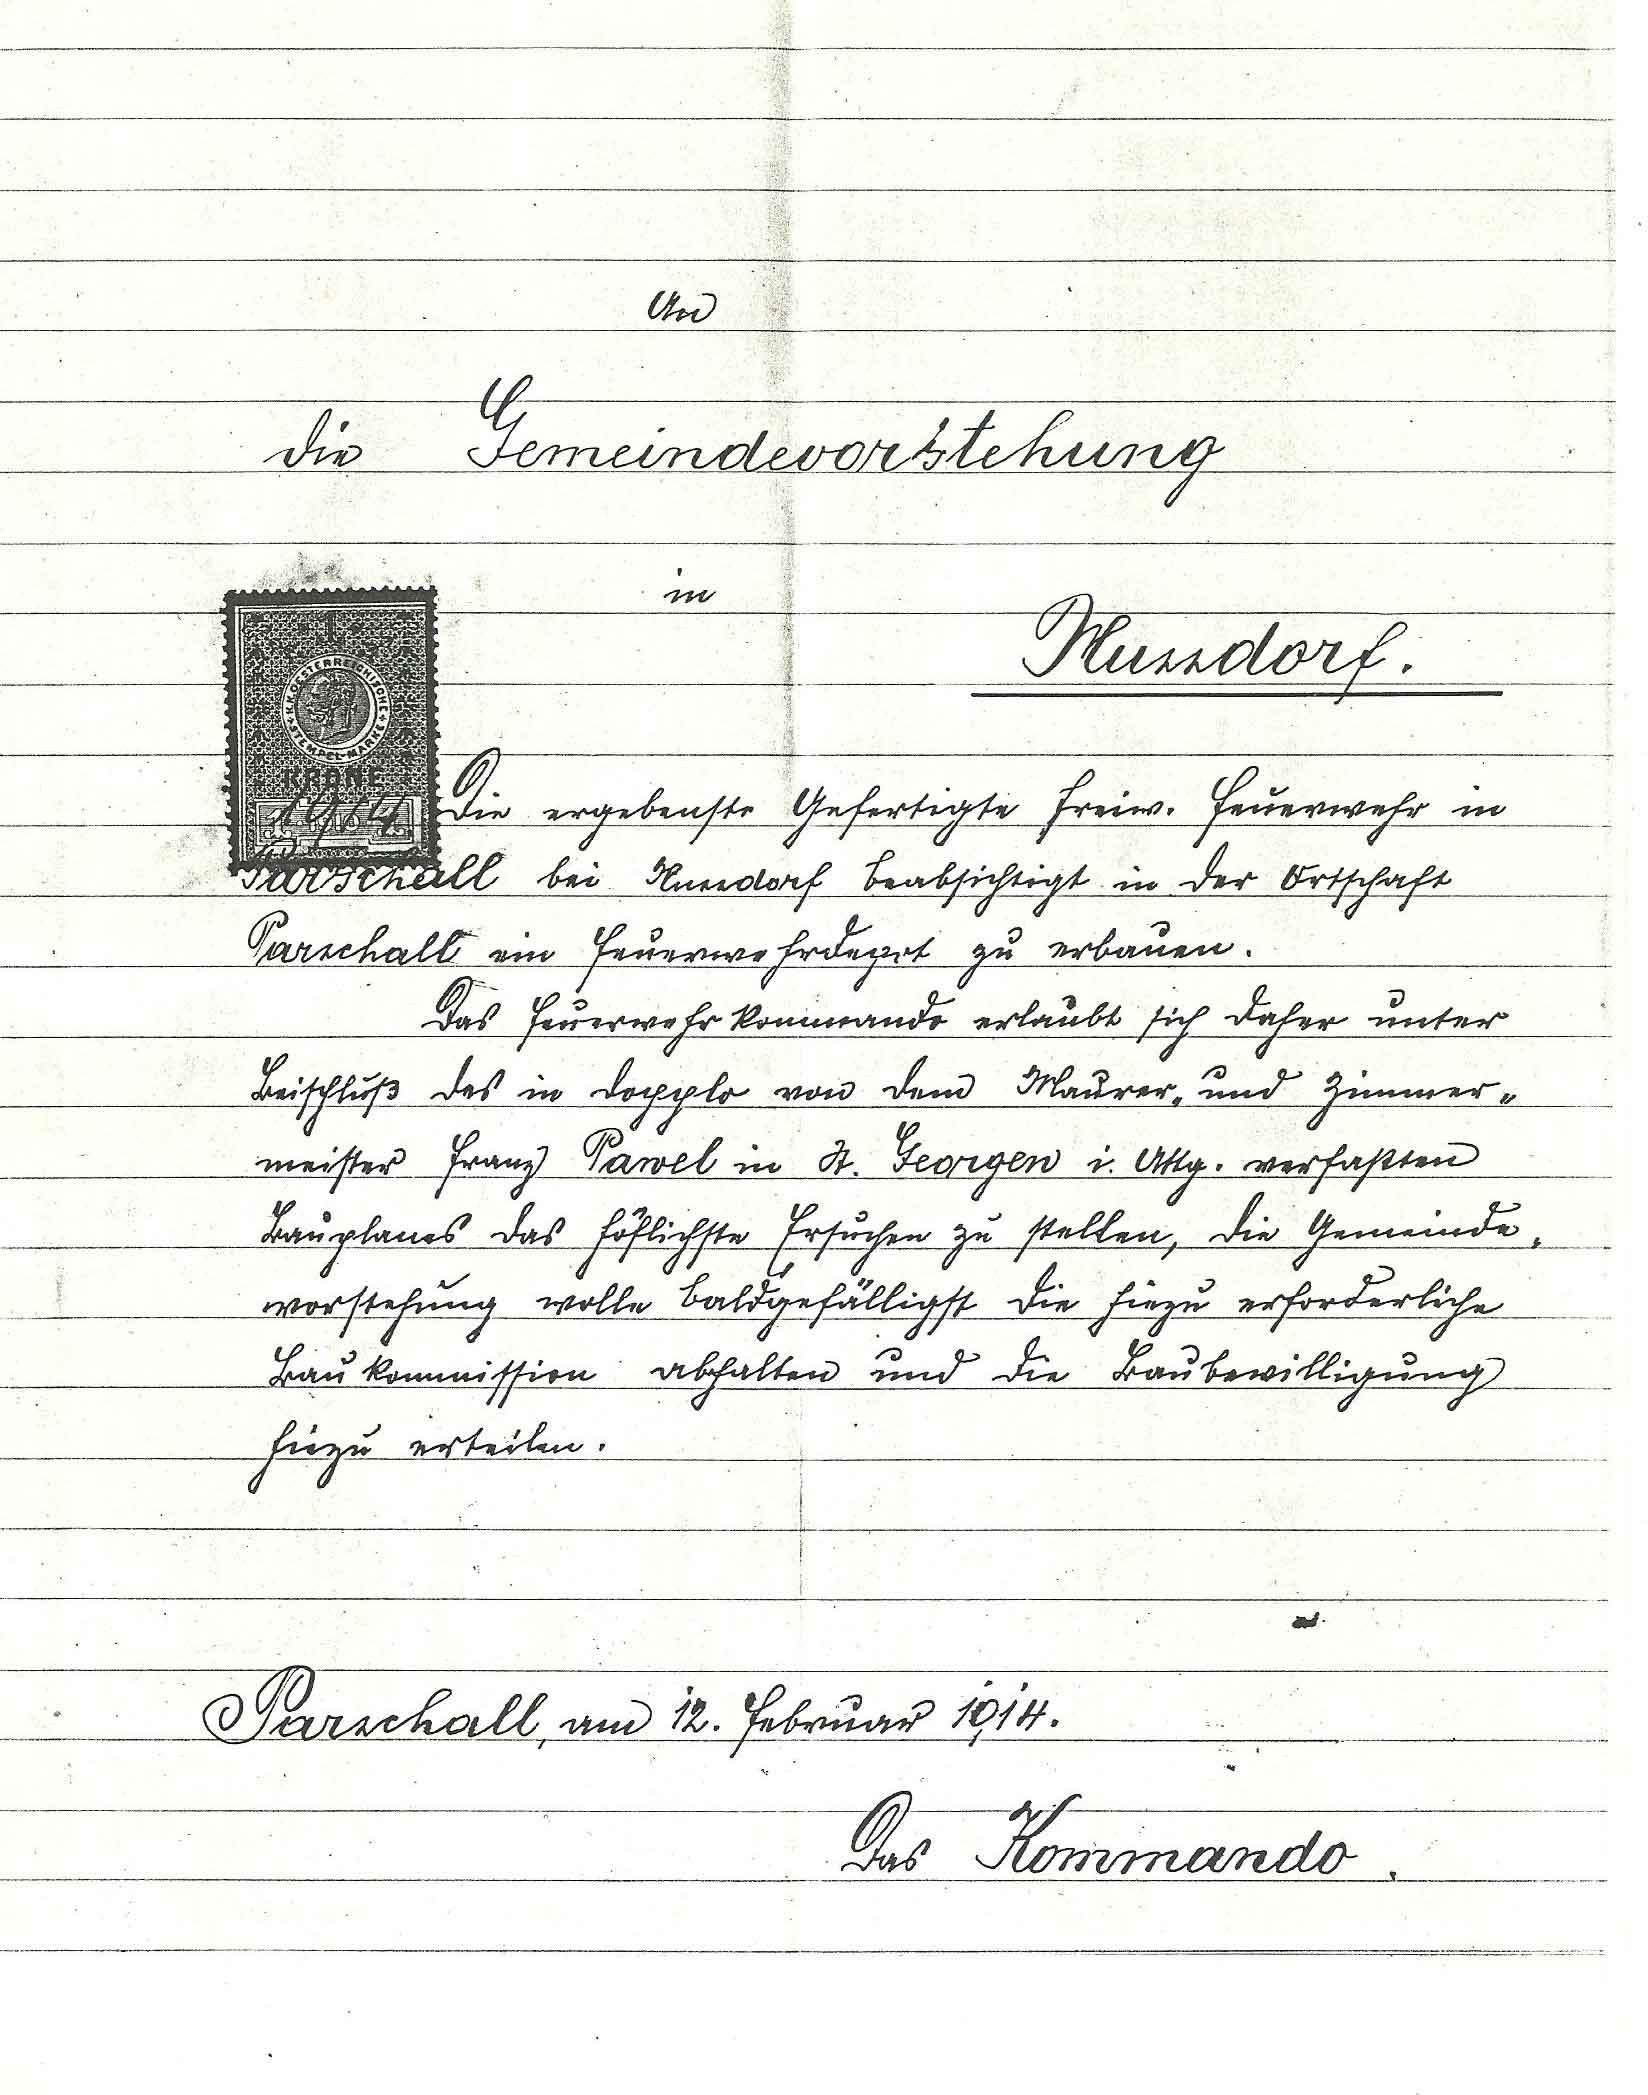 An
die Gemeindevorstehung
in
Nussdorf.
1
K.K. OESTERREICHISCHE
STEMPEL-MARKE
KRONE
1914
Die ergebenste Gefertigte freiw. Feuerwehr in
Parschall bei Nussdorf beabsichtigt in der Ortschaft
Parschall ein Feuerwehrdepot zu erbauen.
Das Feuerwehrkommando erlaubt sich daher unter
Beischluß des in dopplo von dem Maurer- und Zimmer-
meister Franz Pawel in St. Georgen i. Attg. verfaßten
Bauplanes das höflichste Ersuchen zu stellen, die Gemeinde-
vorstehung wolle baldgefälligst die hiezu erforderliche
Baukommission abhalten und die Baubewilligung
hiezu erteilen.
Parschall, am 12. Februar 1914.
Das Kommando.